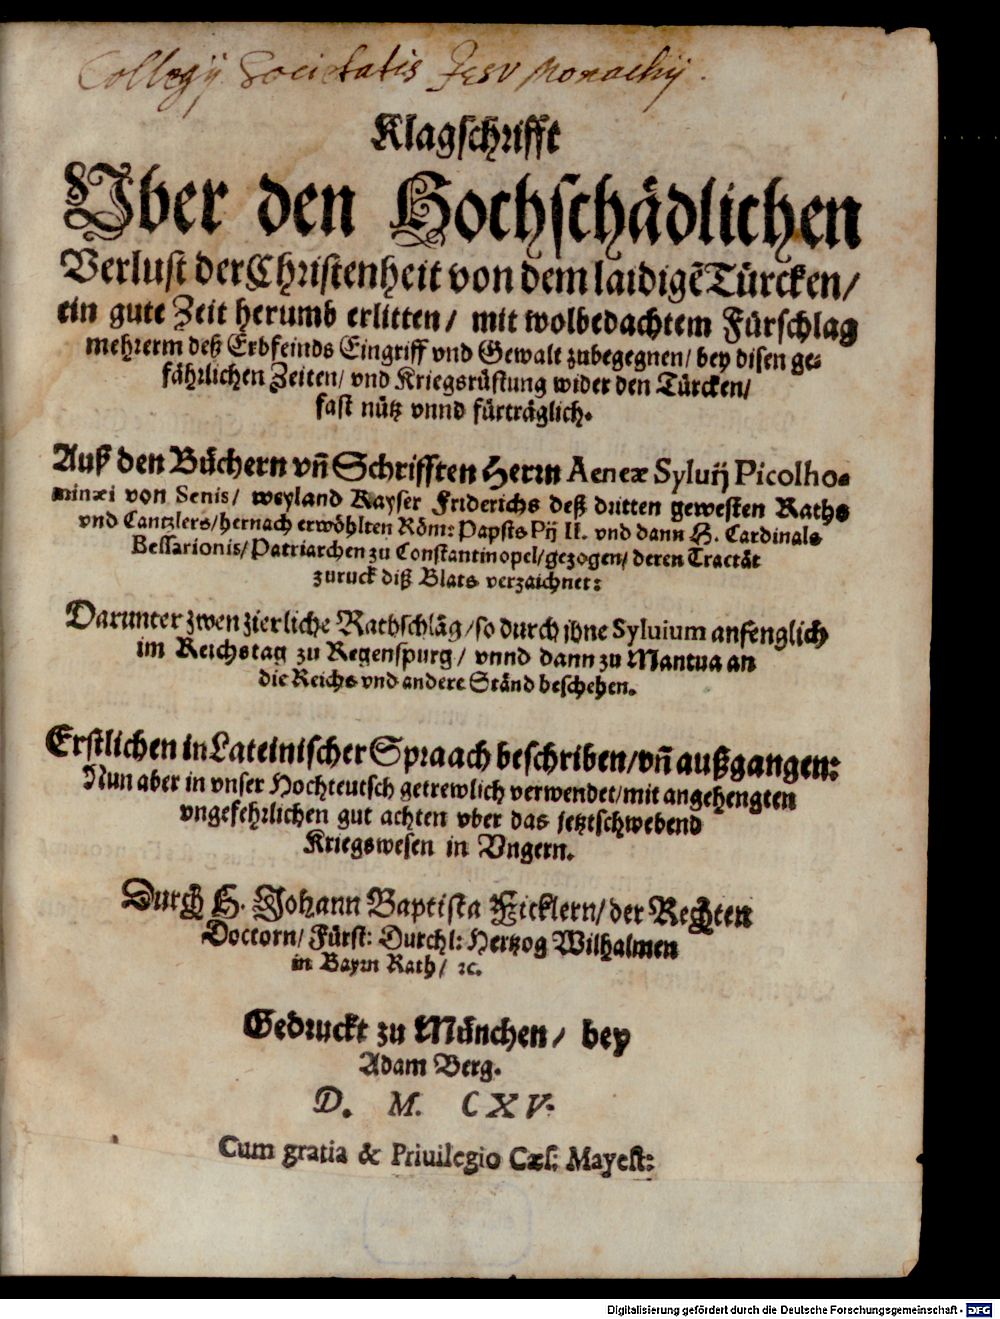 Collegij Societatis Jesv Monachij.
Klagschrifft
Vber den Hochschädlichen
Verlust der Christenheit von dem laidigẽ Türcken/
ein gute Zeit herumb erlitten/ mit wolbedachtem Fürschlag
mehrerm deß Erbfeinds Eingriff vnd Gewalt zubegegnen/ bey disen ge-
fährlichen Zeiten/ vnd Kriegsrüstung wider den Türcken/
fast nütz vnnd fürträglich.
Auß den Büchern vñ Schrifften Herrn Aeneæ Syluij Picolho-
minæi von Senis/ weyland Kayser Friderichs deß dritten gewesten Raths
vnd Cantzlers/ hernach erwöhlten Röm: Papsts Pij II. vnd dann H. Cardinals
Bessarionis/ Patriarchen zu Constantinopel/ gezogen/ deren Tractät
zuruck diß Blats verzaichnet:
Darunter zwen zierliche Rathschläg/ so durch ihne Syluium anfenglich
im Reichstag zu Regenspurg/ vnnd dann zu Mantua an
die Reichs vnd andere Ständ beschehen.
Erstlichen in Lateinischer Spraach beschriben/ vñ außgangen:
Nun aber in vnser Hochteutsch getrewlich verwendet/ mit angehengten
vngefehrlichen gut achten vber das jetztschwebend
Kriegswesen in Vngern.
Durch H. Johann Baptista Ficklern/ der Rechten
Doctorn/ Fürst: Durchl: Hertzog Wilhalmen
in Bayrn Rath/ ꝛc.
Gedruckt zu München/ bey
Adam Berg.
D. M. CXV.
Cum gratia & Priuilegio Cæs: Mayest:
Digitalisierung gefördert durch die Deutsche Forschungsgemeinschaft - DFG